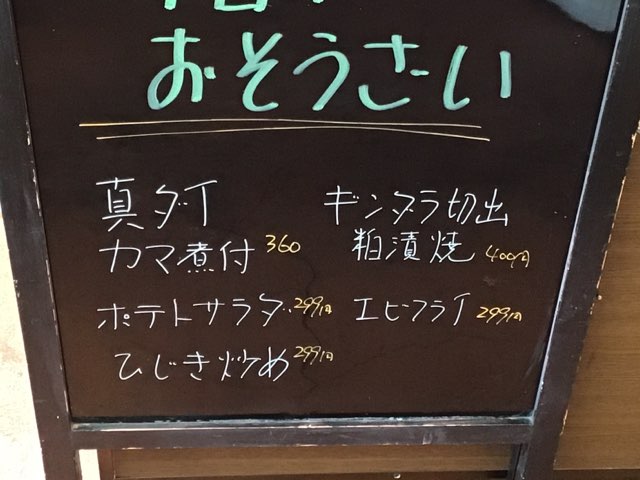 おそうさい
真ダイ
カマ煮付 360
ギンダラ切出
粕漬焼 400円
ポテトサラダ 299円
エビフライ 299円
ひじき炒め 299円